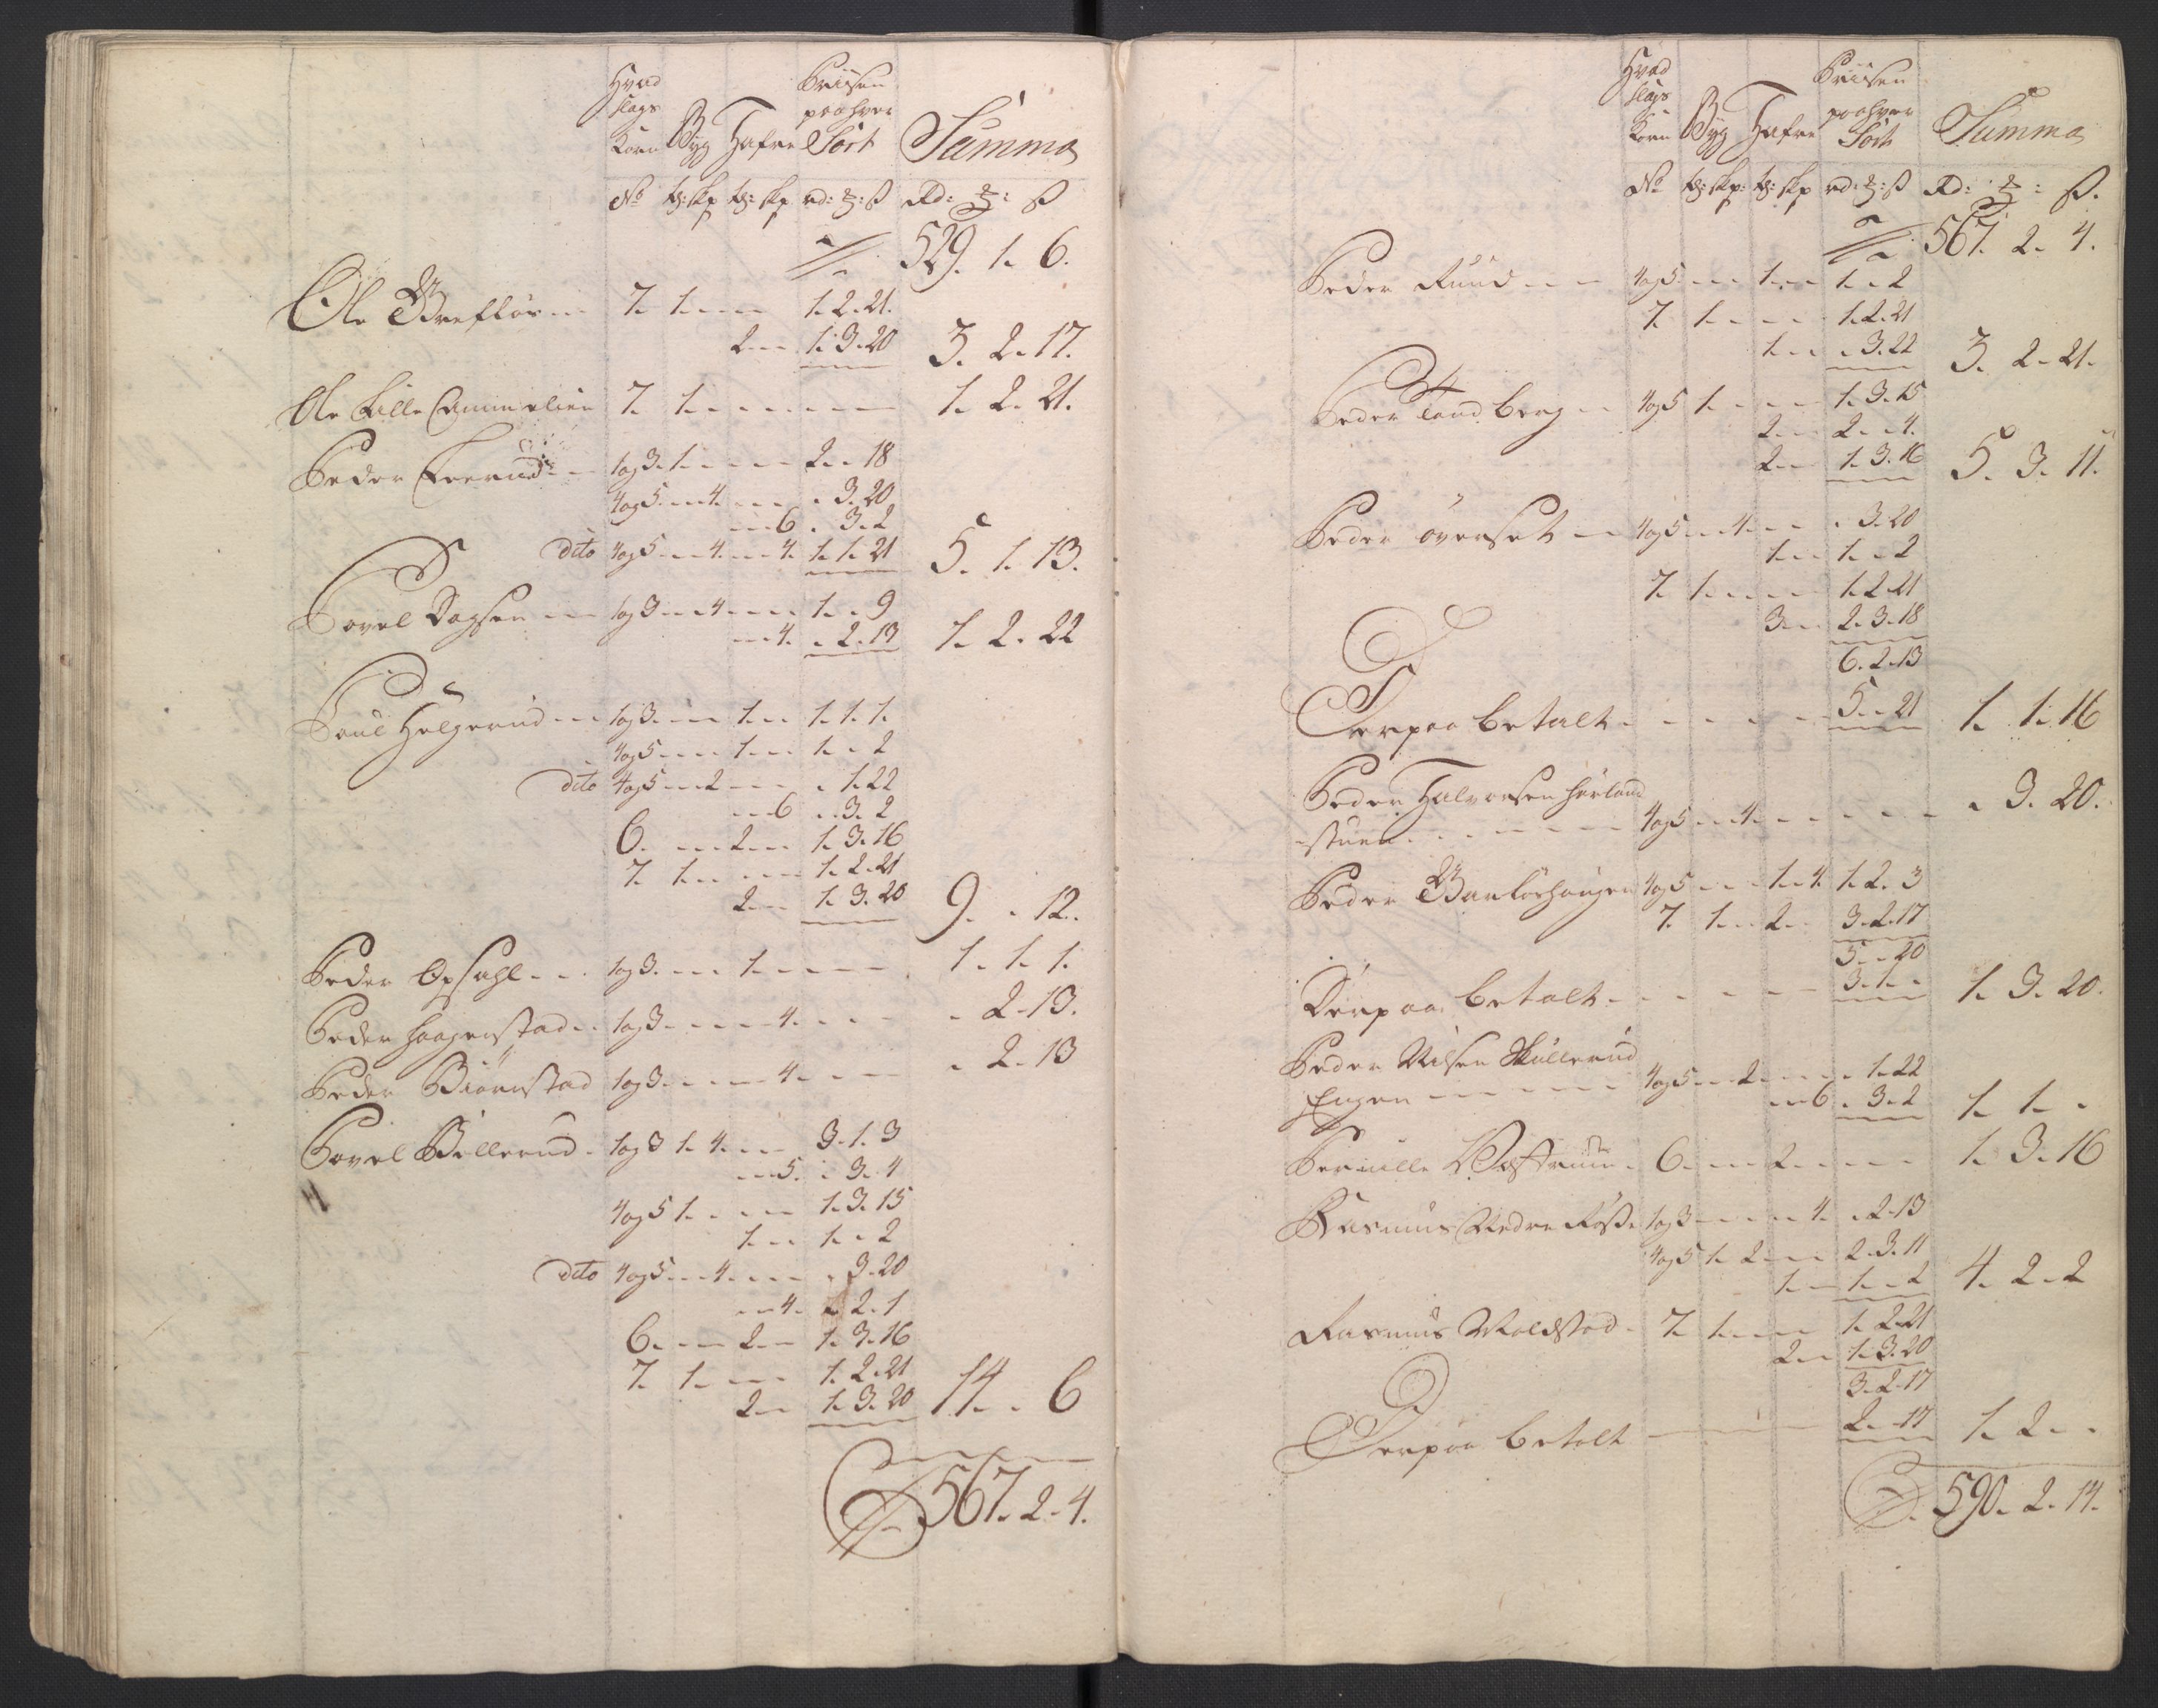 Hvad slags Korn Byg Hafre Priisen paa hver Sort Summa
No tø: skp tø: skp rd: ß Rd: ß
529. 1. 6.
Ole 7. 1. 1. 2. 21.
2 1. 3. 20 3. 2. 17.
Ole Lille 7. 1. 1. 2. 21.
Peder 1og3. 1. 2. 18
4og5. 4. 3. 20
6 . 3. 2
dito 4og5 4. 4. 1. 1. 21 5. 1. 13.
Povel Dagsen 1og3 4. 1. . 9
4. . 2. 13 1. 2. 22
Poul Helgerud 1og3. 1. 1. 1. 1.
4og5 1. 1. . 2
dito 4og5 2 . 1. 22
6 . 3. 2
6. 2. 1. 3. 16
7. 1. 1. 2. 21
2. 1. 3. 20 9. . 12.
Peder Opsahl 1og3. 1. 1. 1. 1.
Peder Haagenstad 1og3. 4. . 2. 13.
Peder Biørnstad 1og3. 4. . 2. 13
Povel Billerud 1og3 1. 4. 3. 1. 3
5. . 3. 4
4og5 1. 1. 3. 15
1. 1. . 2
dito 4og5 4. . 3. 20
4. . 2. 1
6. 2. 1. 3. 16
7. 1. 1. 2. 21
2. 1. 3. 20 14. . 6
567. 2. 4.
Hvad slags Korn Byg Hafre Priisen paa hver Sort Summa
No tø: skp: tø: skp rd: ß Rd: ß.
567. 2. 4.
Peder Ruud 4og5. 1. 1. . 2
7. 1. 1. 2. 21
1. . 3. 22 3. 2. 21.
Peder Landberg 4og5 1. 1. 3. 15
2. 2. . 4.
2. 1. 3. 16 5. 3. 11.
Peder Øverset 4og5 4. . 3. 20
1. 1. . 2
7. 1. 1. 2. 21
3. 2. 3. 18
6. 2. 13
Derpaa betalt 5. . 21 1. 1. 16
Peder Halvorsen
stuen 4og5 4. . 3. 20.
Peder 4og5 1. 4. 1. 2. 3
7. 1. 2. 3. 2. 17
5. . 20
Derpaa betalt 3. 1. . 1. 3. 20.
Peder Nilsen Skullerud
Engen 4og5 2 . 1. 22
6 . 3. 2 1. 1. .
Pernille 6. 2. 1. 3. 16
Rasmus Nedre 1og3 4. . 2. 13
4og5 1. 2. 2. 3. 11
1. 1. . 2 4. 2. 2
Rasmus Moldstad 7. 1. 1. 2. 21
2. 1. 3. 20
3. 2. 17
Derpaa betalt 2. . 17 1. 2. .
590. 2. 14.